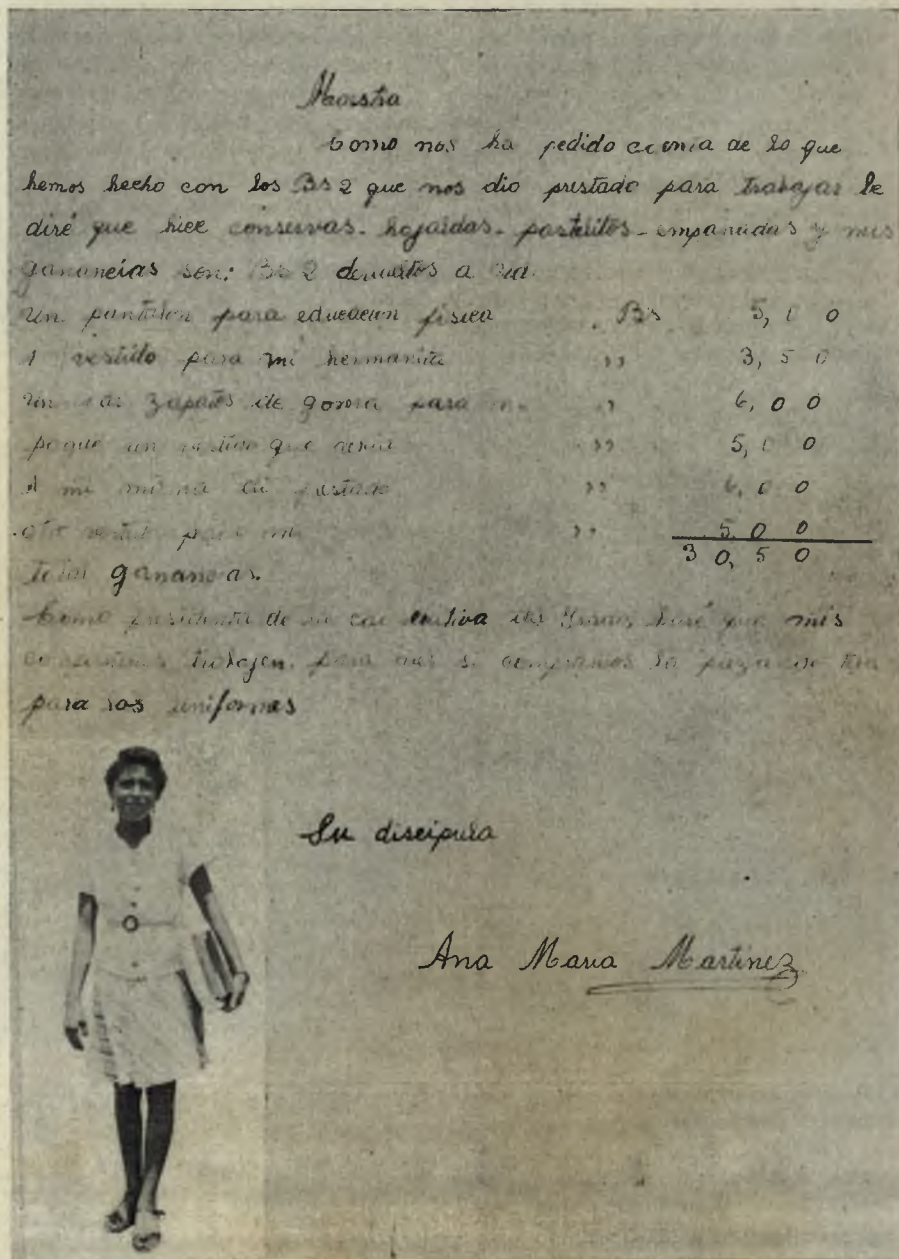 Maestra
Como nos ha pedido cuenta de lo que
hemos hecho con los Bs 2 que nos dio prestado para trabajar le
diré que hice conservas - hojaldas - pastelitos - empanadas y mis
ganancias son: Bs 2 devueltos a Ud.
Un pantalon para educacion fisica . Bs 5,00
1 vestido para mi hermanita ,, 3,50
Un par zapatos de goma para mi ,, 6,00
pague un vestido que debia ,, 5,00
A mi mamá di prestado ,, 6,00
otro vestido para mi ,, 5,00
30,50
Total ganancias.
Como presidenta de haré que mis
trabajen para si compramos la pieza de tela
para los uniformes
Su discipula
Ana Maria Martinez